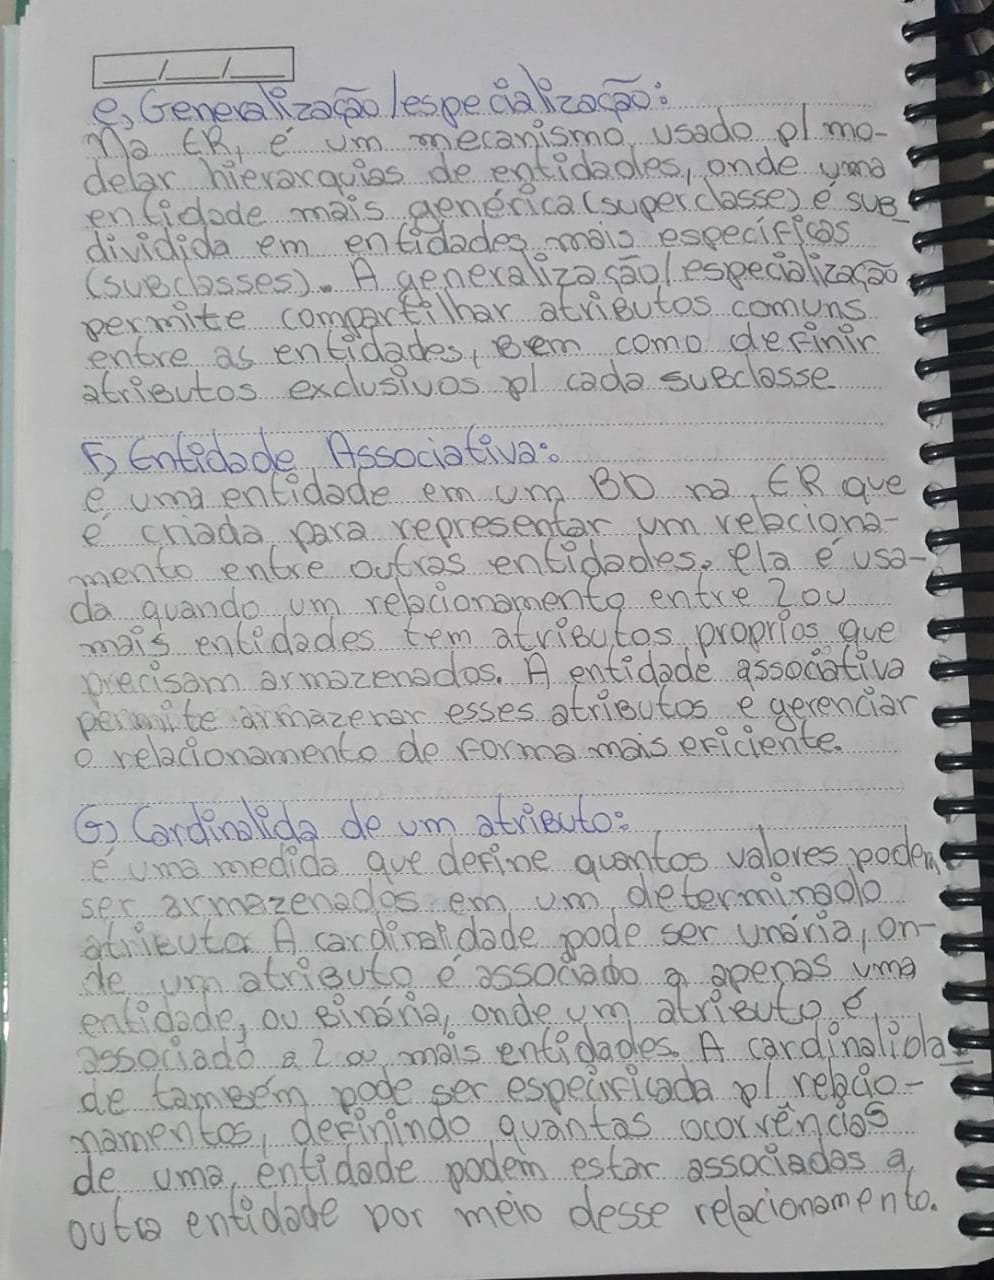 e, Generalização/especialização:
Na ER, é um mecanismo usado p/ mo-
delar hierarquias de entidades, onde uma
entidade mais genérica (superclasse) é sub_
dividida em entidades mais específicas
(subclasses). A generalização/especialização
permite compartilhar atributos comuns
entre as entidades, bem como definir
atributos exclusivos p/ cada subclasse
F) Entidade Associativa:
é uma entidade em um BD na ER que
é criada para representar um relaciona-
mento entre outras entidades. ela é usa-
da quando um relacionamento entre 2 ou
mais entidades tem atributos proprios que
precisam armazenados. A entidade associativa
permite armazenar esses atributos e gerenciar
o relacionamento de forma mais eficiente.
G) Cardinalida de um atributo:
é uma medida que define quantos valores podem
ser armazenados em um determinado
atributo. A cardinalidade pode ser unária, on-
de um atributo é associado a apenas uma
entidade, ou Binária, onde um atributo é
associado a 2 ou mais entidades. A cardinalida-
de também pode ser especificada p/ relacio-
namentos, definindo quantas ocorrências
de uma entidade podem estar associadas a
outra entidade por meio desse relacionamento.